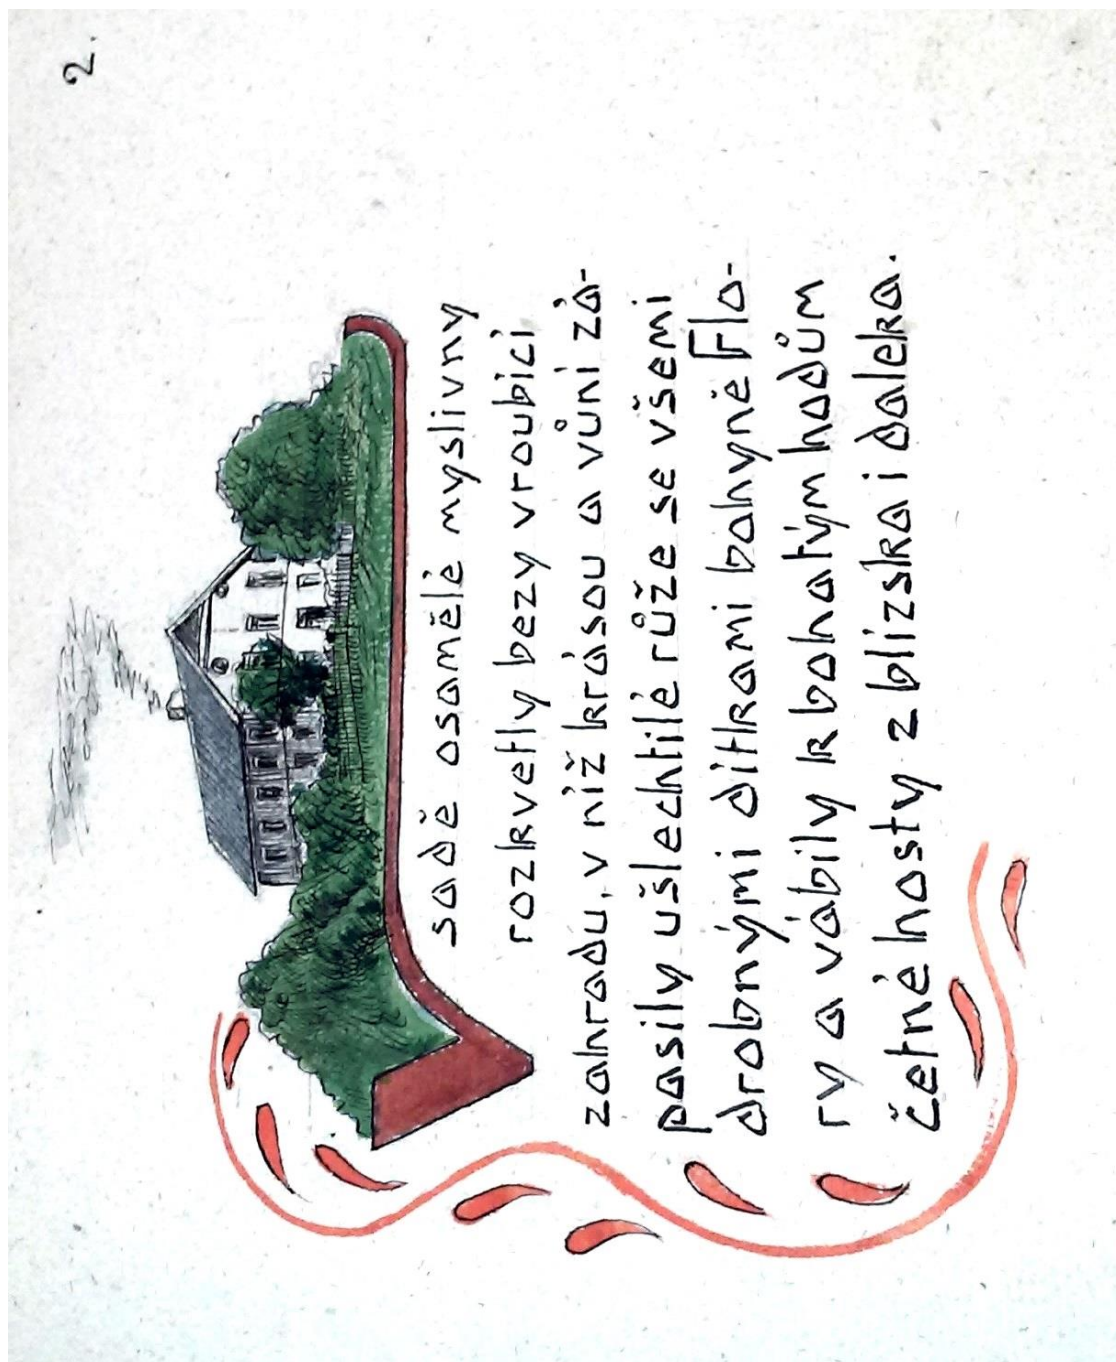 2.
V sadě osamělé myslivny
rozkvetly bezy vroubící
zahradu, v níž krásou a vůní zá-
pasily ušlechtilé růže se všemi
drobnými dítkami bohyně Flo-
ry a vábily k bohatým hodům
četné hosty z blízka i daleka.